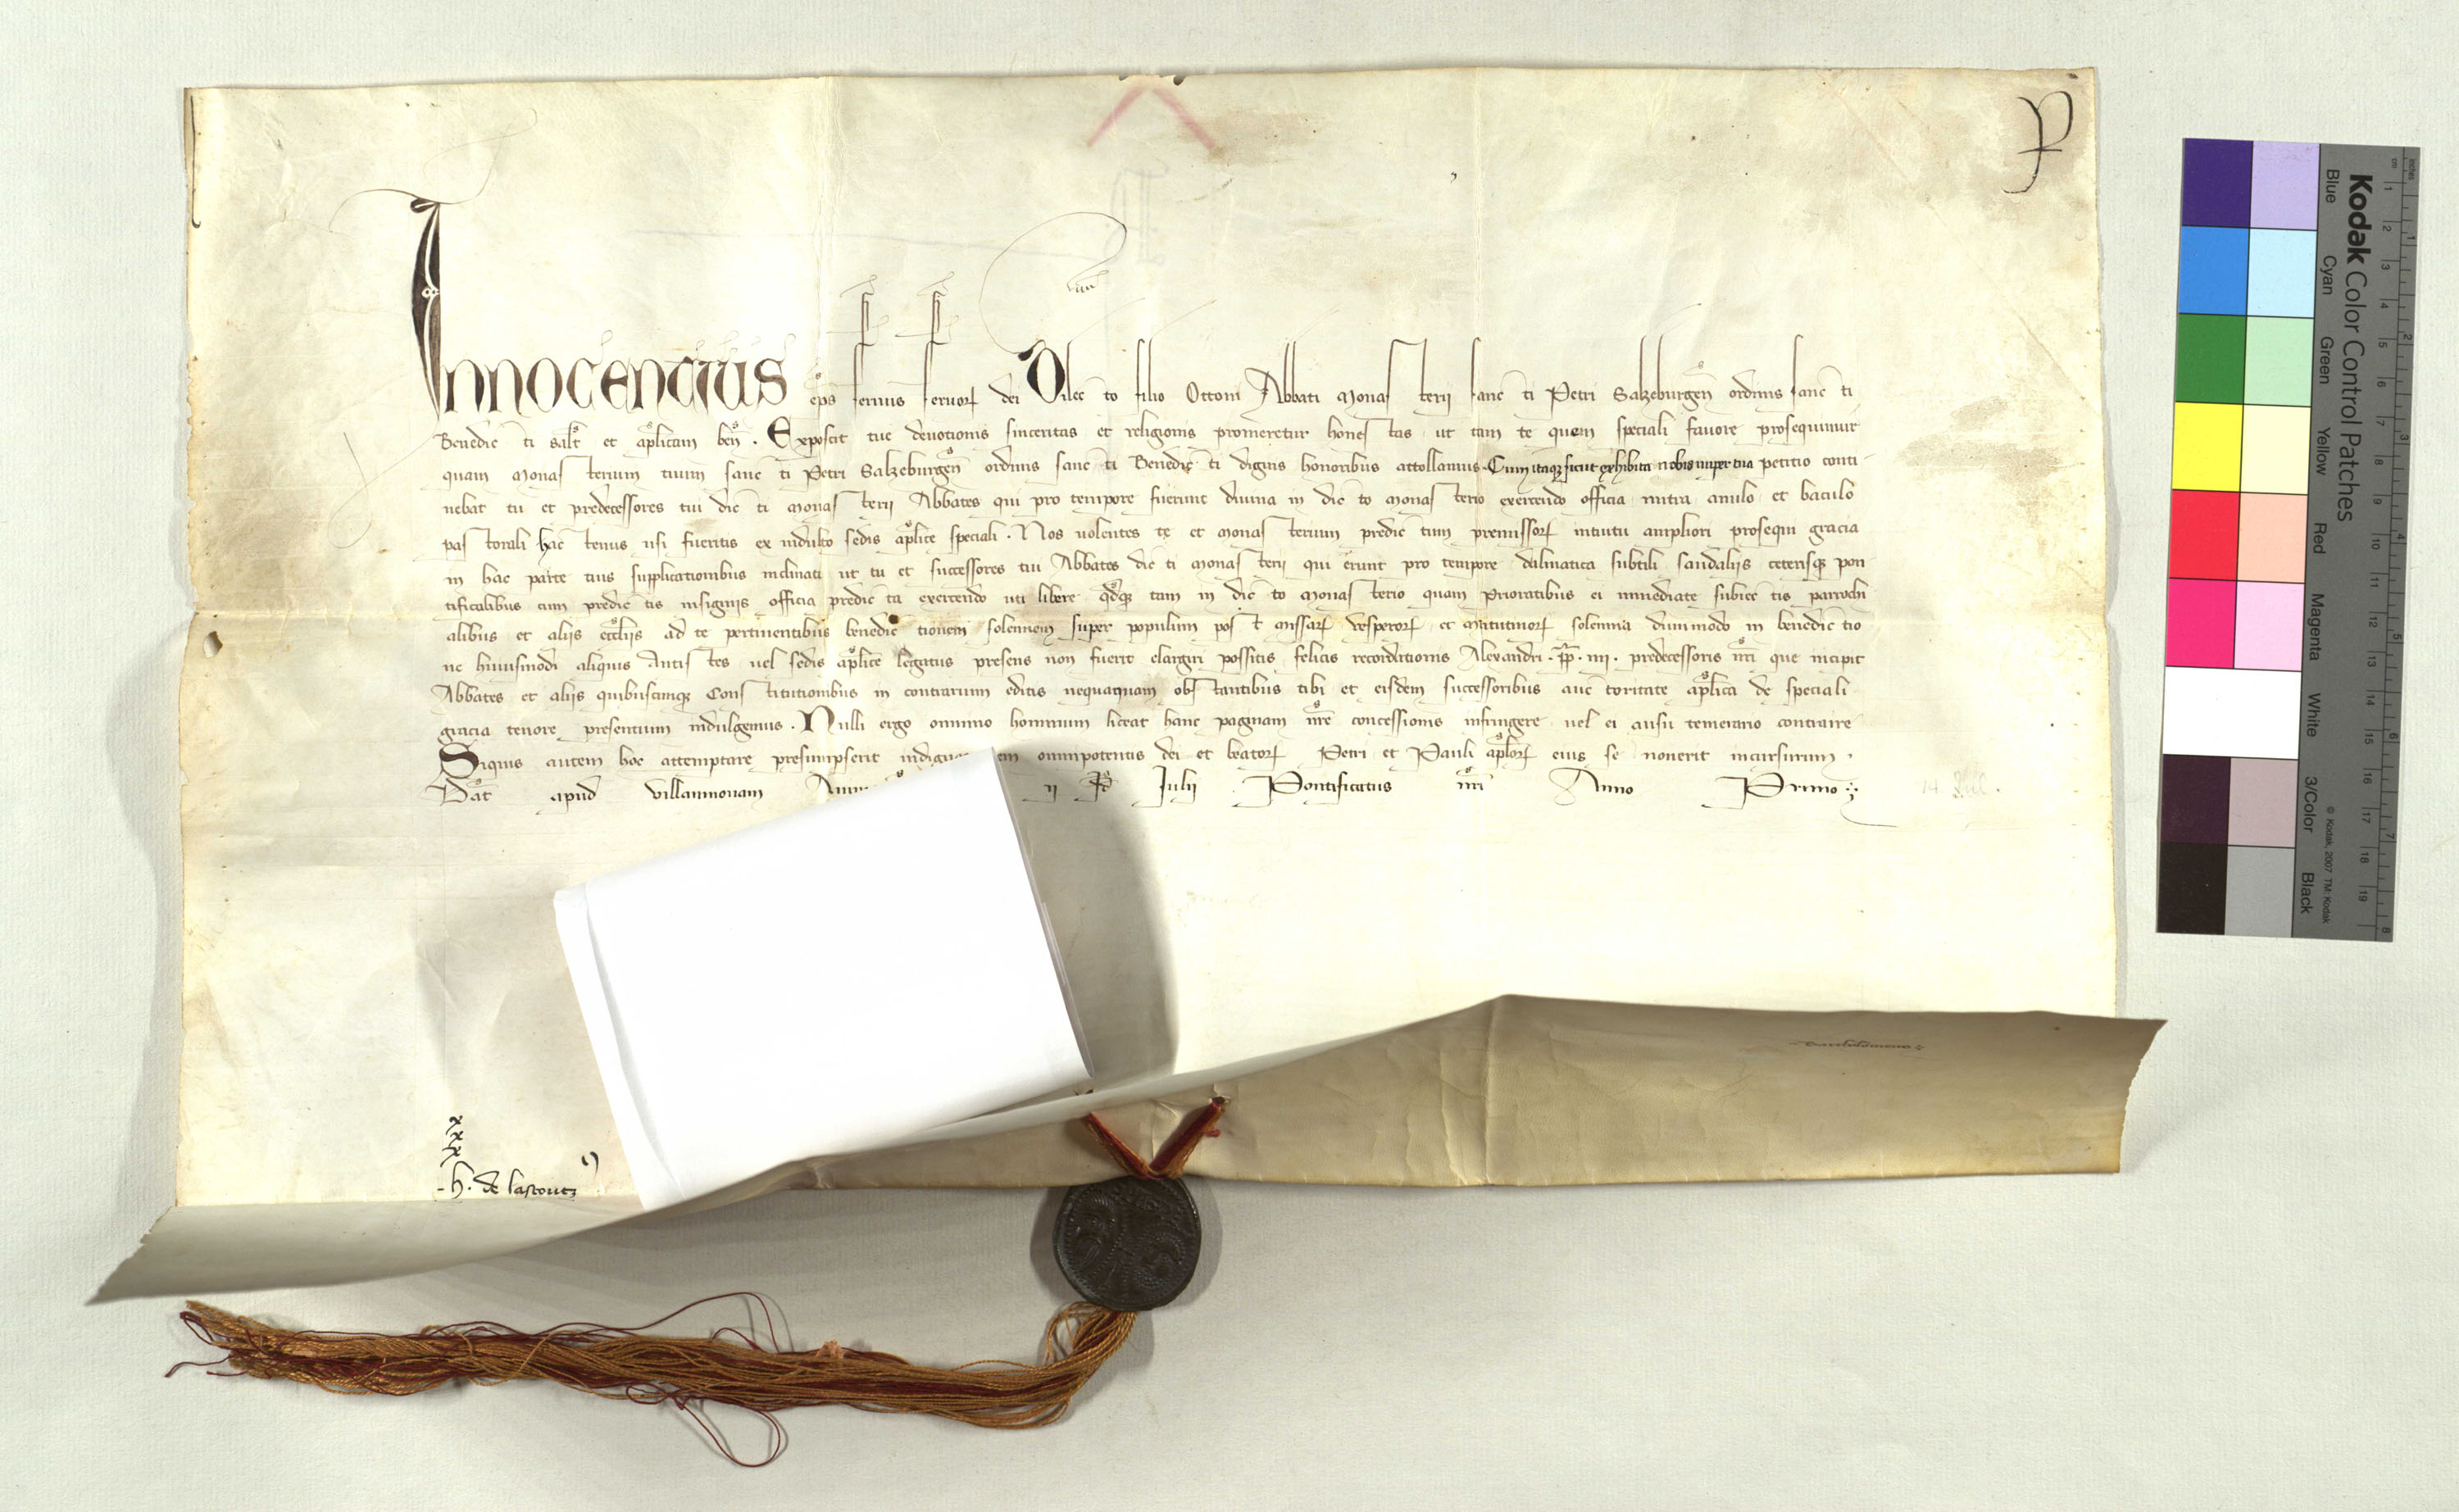 Innocentius ep̄s seruus seruoꝝ dei Dilec to filio Ottoni Abbati Monas terii sanc ti Petri Salzeburgen̄ ordinis sanc ti
Benedic ti salt̄ et ap̄licam ben̄. Exposcit tue deuotionis sinceritas et religionis promeretur hones tas ut tam te quem speciali fauore prosequimur
quam Monas terium tuum sanc ti Petri Salzeburgen̄ ordinis sanc ti Benedic ti dignis honoribus attollamus. Cum itaqꝫ sicut exhibita nobis nuper tua petitio conti-
nebat tu et predecessores tui dic ti Monas terii Abbates qui pro tempore fuerunt diuina in dic to Monas terio exercendo officia mitra anulo et baculo
pas torali hac tenus usi fueritis ex indulto sedis ap̄lice speciali. Nos uolentes te et Monas terium predic tum premissoꝝ intuitu ampliori prosequi gracia
in hac parte tuis supplicationibus inclinati ut tu et successores tui Abbates dic ti Monas terii qui erunt pro tempore dalmatica subtili sandaliis ceterisqꝫ pon
tificalibus cum predic tis insigniis officia predic ta exercendo uti libere qđqꝫ tam in dic to Monas terio quam Prioratibus ei immediate subiec tis parrochi
alibus et aliis eccliis ad te pertinentibus benedic tionem solennem super populum pos t missaꝝ vesperoꝝ et matutinoꝝ solennia dummodo in benedic tio
ne huiusmodi aliquis Antis tes uel sedis ap̄lice legatus presens non fuerit elargiri possitis felicis recordationis Alexandri .pp̄. iiii. predecessoris nr̄i que incipit
Abbates et aliis quibuscunqꝫ Cons titutionibus in contrarium editis nequaquam obs tantibus tibi et eisdem successoribus auc toritate ap̄lica de speciali
gracia tenore presentium indulgemus. Nulli ergo omnino hominum liceat hanc paginam nr̄e concessionis infringere uel ei ausu temerario contraire
Siquis autem hoc attemptare presumpserit indigna em omnipotentis dei et beatoꝝ Petri et Pauli ap̄loꝝ eius se nouerit incursurum.
Dat̄ apud villamnouam Auin ii Id Iulii Pontificatus nr̄i Anno Primo
h. de lascoutz
Bartholomeus
Kodak Color Control Patches
Blue Cyan Green Yellow Red Magenta White 3/Color Black
© Kodak, 2007 TM: Kodak
inches 1 2 3 4 5 6 7 8
cm 1 2 3 4 5 6 7 8 9 10 11 12 13 14 15 16 17 18 19